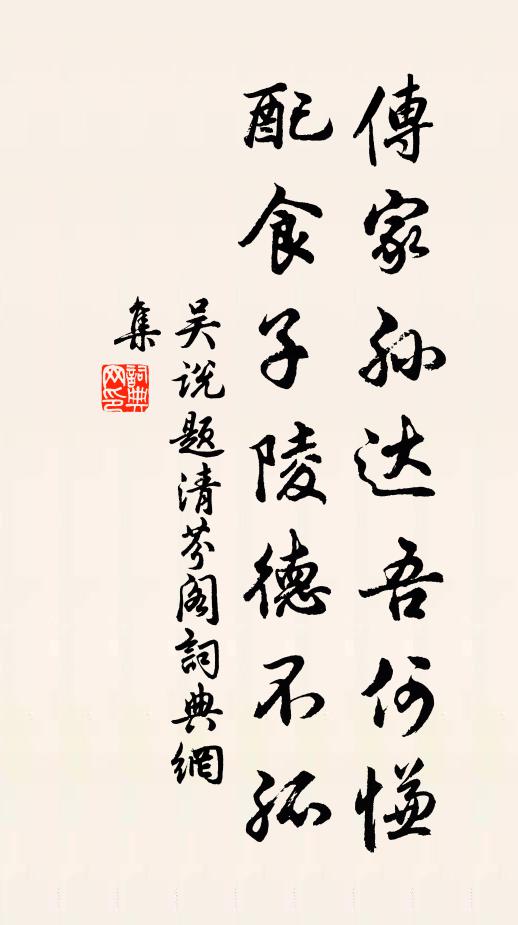 傳家孙达吾何慊
配食子陵德不孤
吴说题清芬阁詞典網
集
詞典
网印